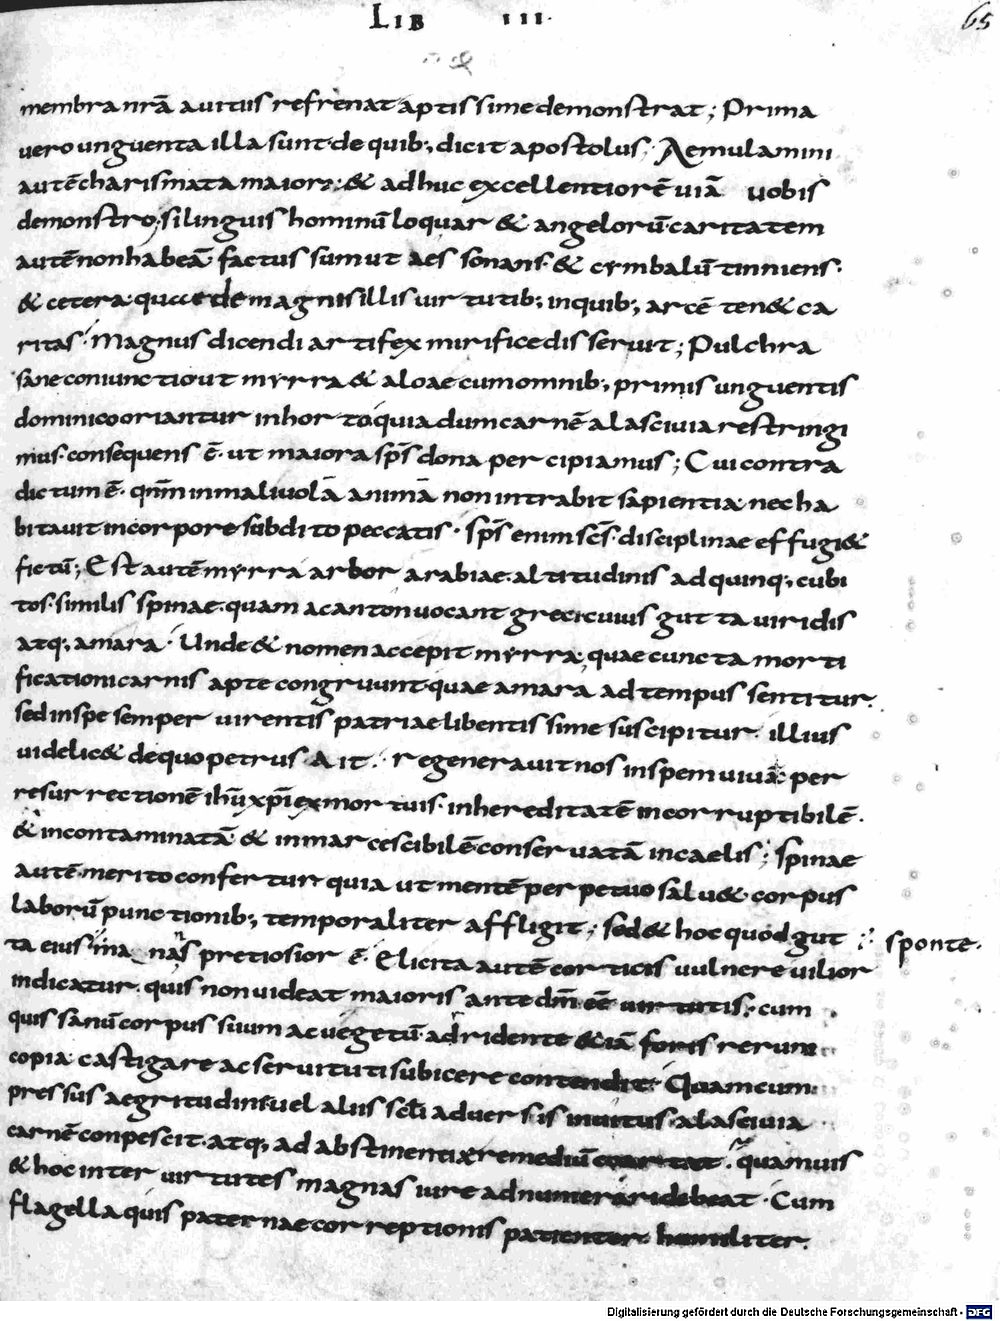 LIB III.
65
membra nrā a uitiis refrenat aptissime demonstrat; Prima
uero unguenta illa sunt de quib; dicit apostolus; Aemulamini
autē charismata maiora; & adhuc excellentiorē uiā uobis
demonstro; si linguis hominū loquar & angelorū caritatem
autē non habeā factus sum ut aes sonans & cymbalū tinniens.
& cetera quae de magnis illis uirtutib; in quib; arcē ten& ca
ritas. Magnus dicendi artifex mirifice disseruit; Pulchra
sane coniunctio ut myrra & aloae cum omnib; primis unguentis
dominico oriantur in horto quia dum carnē a lasciuia restringi
mus consequens ē. ut maiora sps dona percipiamus; Cui contra
dictum ē. qnm in maliuolā animā non intrabit sapientia nec ha
bitauit in corpore subdito peccatis. sps enim scs disciplinae effugi&
fictū; Est autē myrra arbor arabiae altitudinis ad quinq; cubi
tos. similis spinae. quam acanton uocant greci cuius gutta uiridis
atq; amara. Unde & nomen accepit myrra, quae cuncta morti
ficationi carnis apte congruunt quae amara ad tempus sentitur.
sed in spe semper uirentis patriae libentissime suscipitur. illius
uidelic& de quo petrus Ait. regenerauit nos in spem uiuā per
resurrectionē ihū xpi ex mortuis. in hereditatē incorruptibilē.
& incontaminatā & inmarcescibilē conseruatā in caelis; spinae
autē merito confertur quia ut mentē perpetuo salu& corpus
laborū punctionib; temporaliter affligit; sed & hoc quod gut
sponte.
ta eius manans pretiosior ē. Elicita autē corticis uulnere uilior
indicatur. quis non uideat maioris ante dm eē uirtutis; cum
quis sanū corpus suum ac uegetū adridente &iā foris rerum
copia castigare ac seruituti subicere contendit. Quam cum
pressus aegritudine uel aliis scli aduersis inuitus a lasciuia
carnē conpescit. atq; ad abstinentiae remediū coartat. quamuis
& hoc inter uirtutes magnas iure adnumerari debeat. Cum
flagella quis paternae correptionis patienter humiliter.
Digitalisierung gefördert durch die Deutsche Forschungsgemeinschaft - DFG